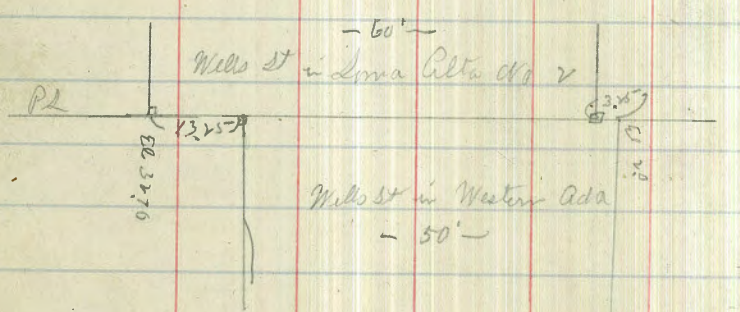 — 60' —
Wells St in Loma Alta No 2
PL
13.25
13.25
El 32.76
Wells St in Western Ada
— 50' —